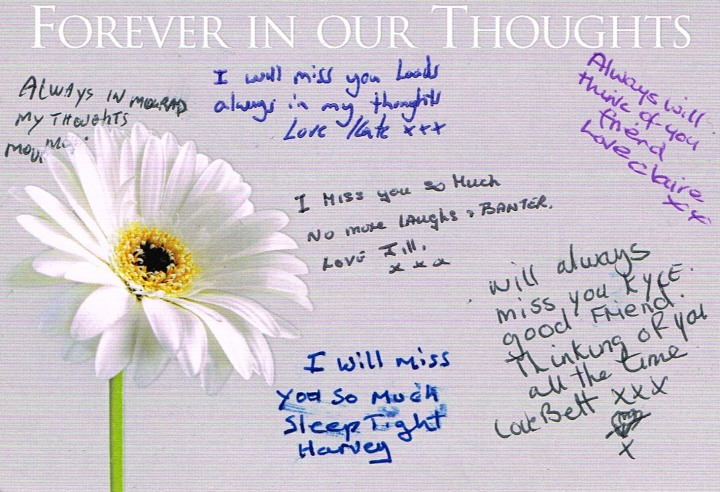 FOREVER IN OUR THOUGHTS
ALWAYS IN MOURAD
MY THOUGHTS
I will miss you Loads
always in my thoughts
Love Kate xxx
Always will
think of you
friend
Love Claire
xx
I MISS you so Much
No more LAUGHS & BANTER.
LOVE Jill.
x x x
will always
miss you KYLE.
good FRiend.
thinking of you
all the time
Love Bett xxx
x
I will miss
you so Much
Sleep Tight
Harvey